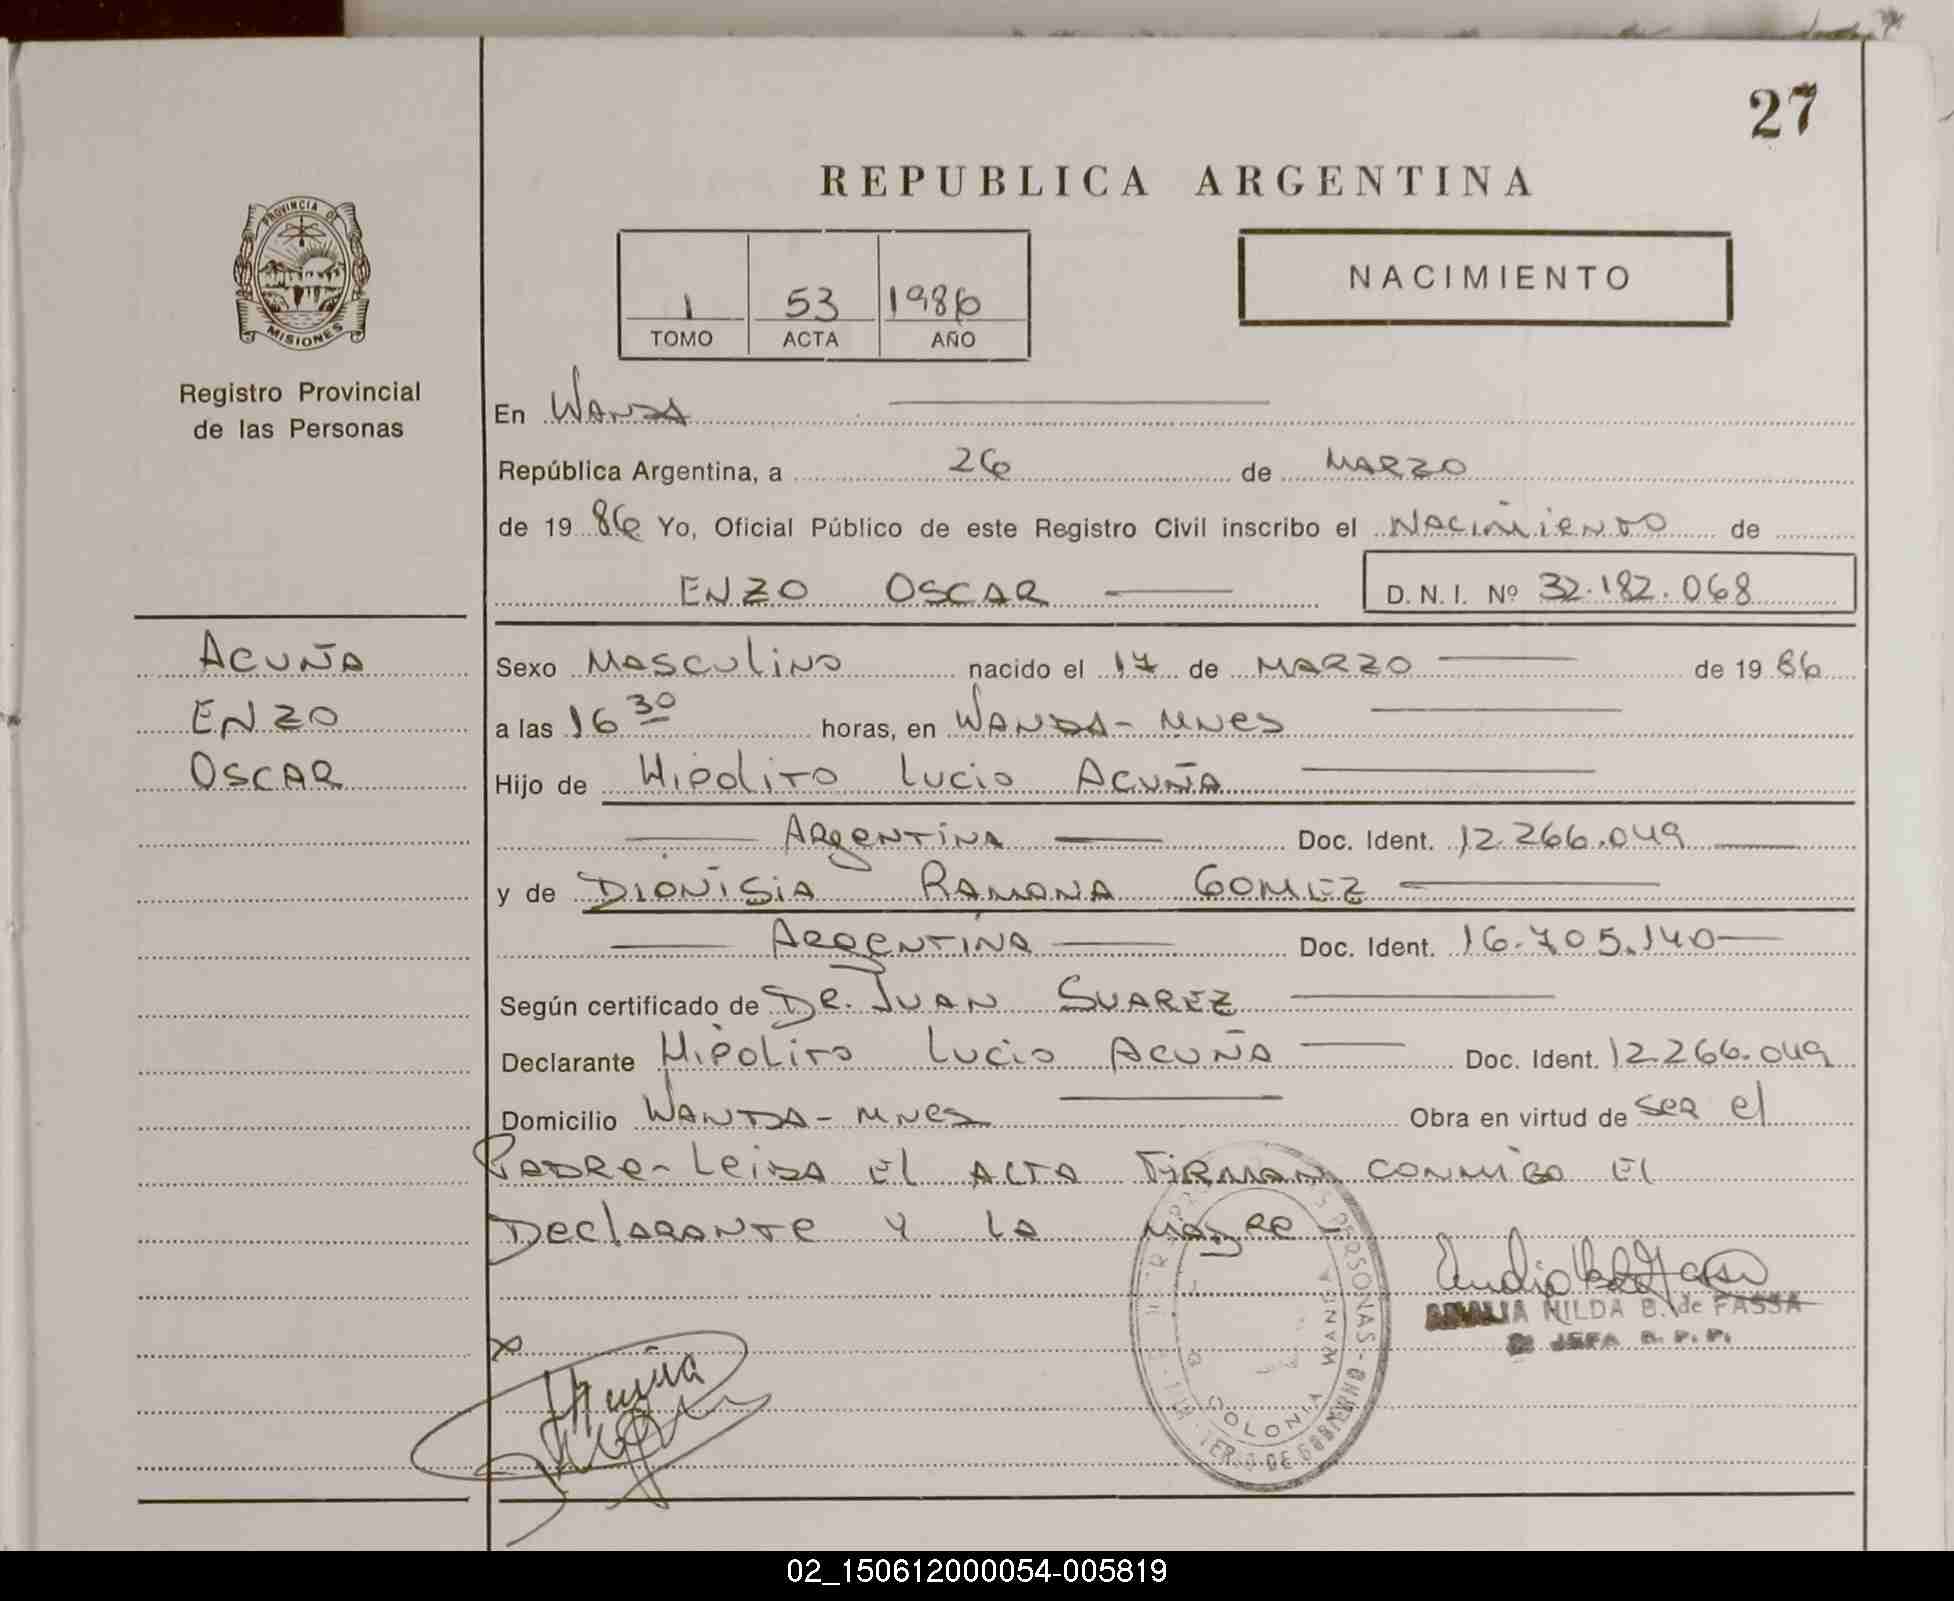 27
REPUBLICA ARGENTINA
PROVINCIA DE
MISIONES
Registro Provincial
de las Personas
1 53 1986
TOMO ACTA AÑO
NACIMIENTO
En WANDA
República Argentina, a 26 de MARZO
de 19 86 Yo, Oficial Público de este Registro Civil inscribo el NACIMIENTO de
ENZO OSCAR D. N. I. Nº 32.182.068
ACUÑA
ENZO
OSCAR
Sexo MASCULINO nacido el 17 de MARZO de 19 86
a las 16 30 horas, en WANDA - MNES
Hijo de HIPOLITO LUCIO ACUÑA
ARGENTINA Doc. Ident. 12.266.049
y de DIONISIA RAMONA GOMEZ
ARGENTINA Doc. Ident. 16.705.140
Según certificado de DR. JUAN SUAREZ
Declarante HIPOLITO LUCIO ACUÑA Doc. Ident. 12.266.049
Domicilio WANDA - MNES Obra en virtud de SER El
PADRE - LEIDA El ACTA FIRMAN CONMIGO El
DECLARANTE Y LA MADRE
AMALIA HILDA B. de FASSA
JEFA R. P. P.
PERSONAS
COLONIA WANDA
Acuña
02_150612000054-005819